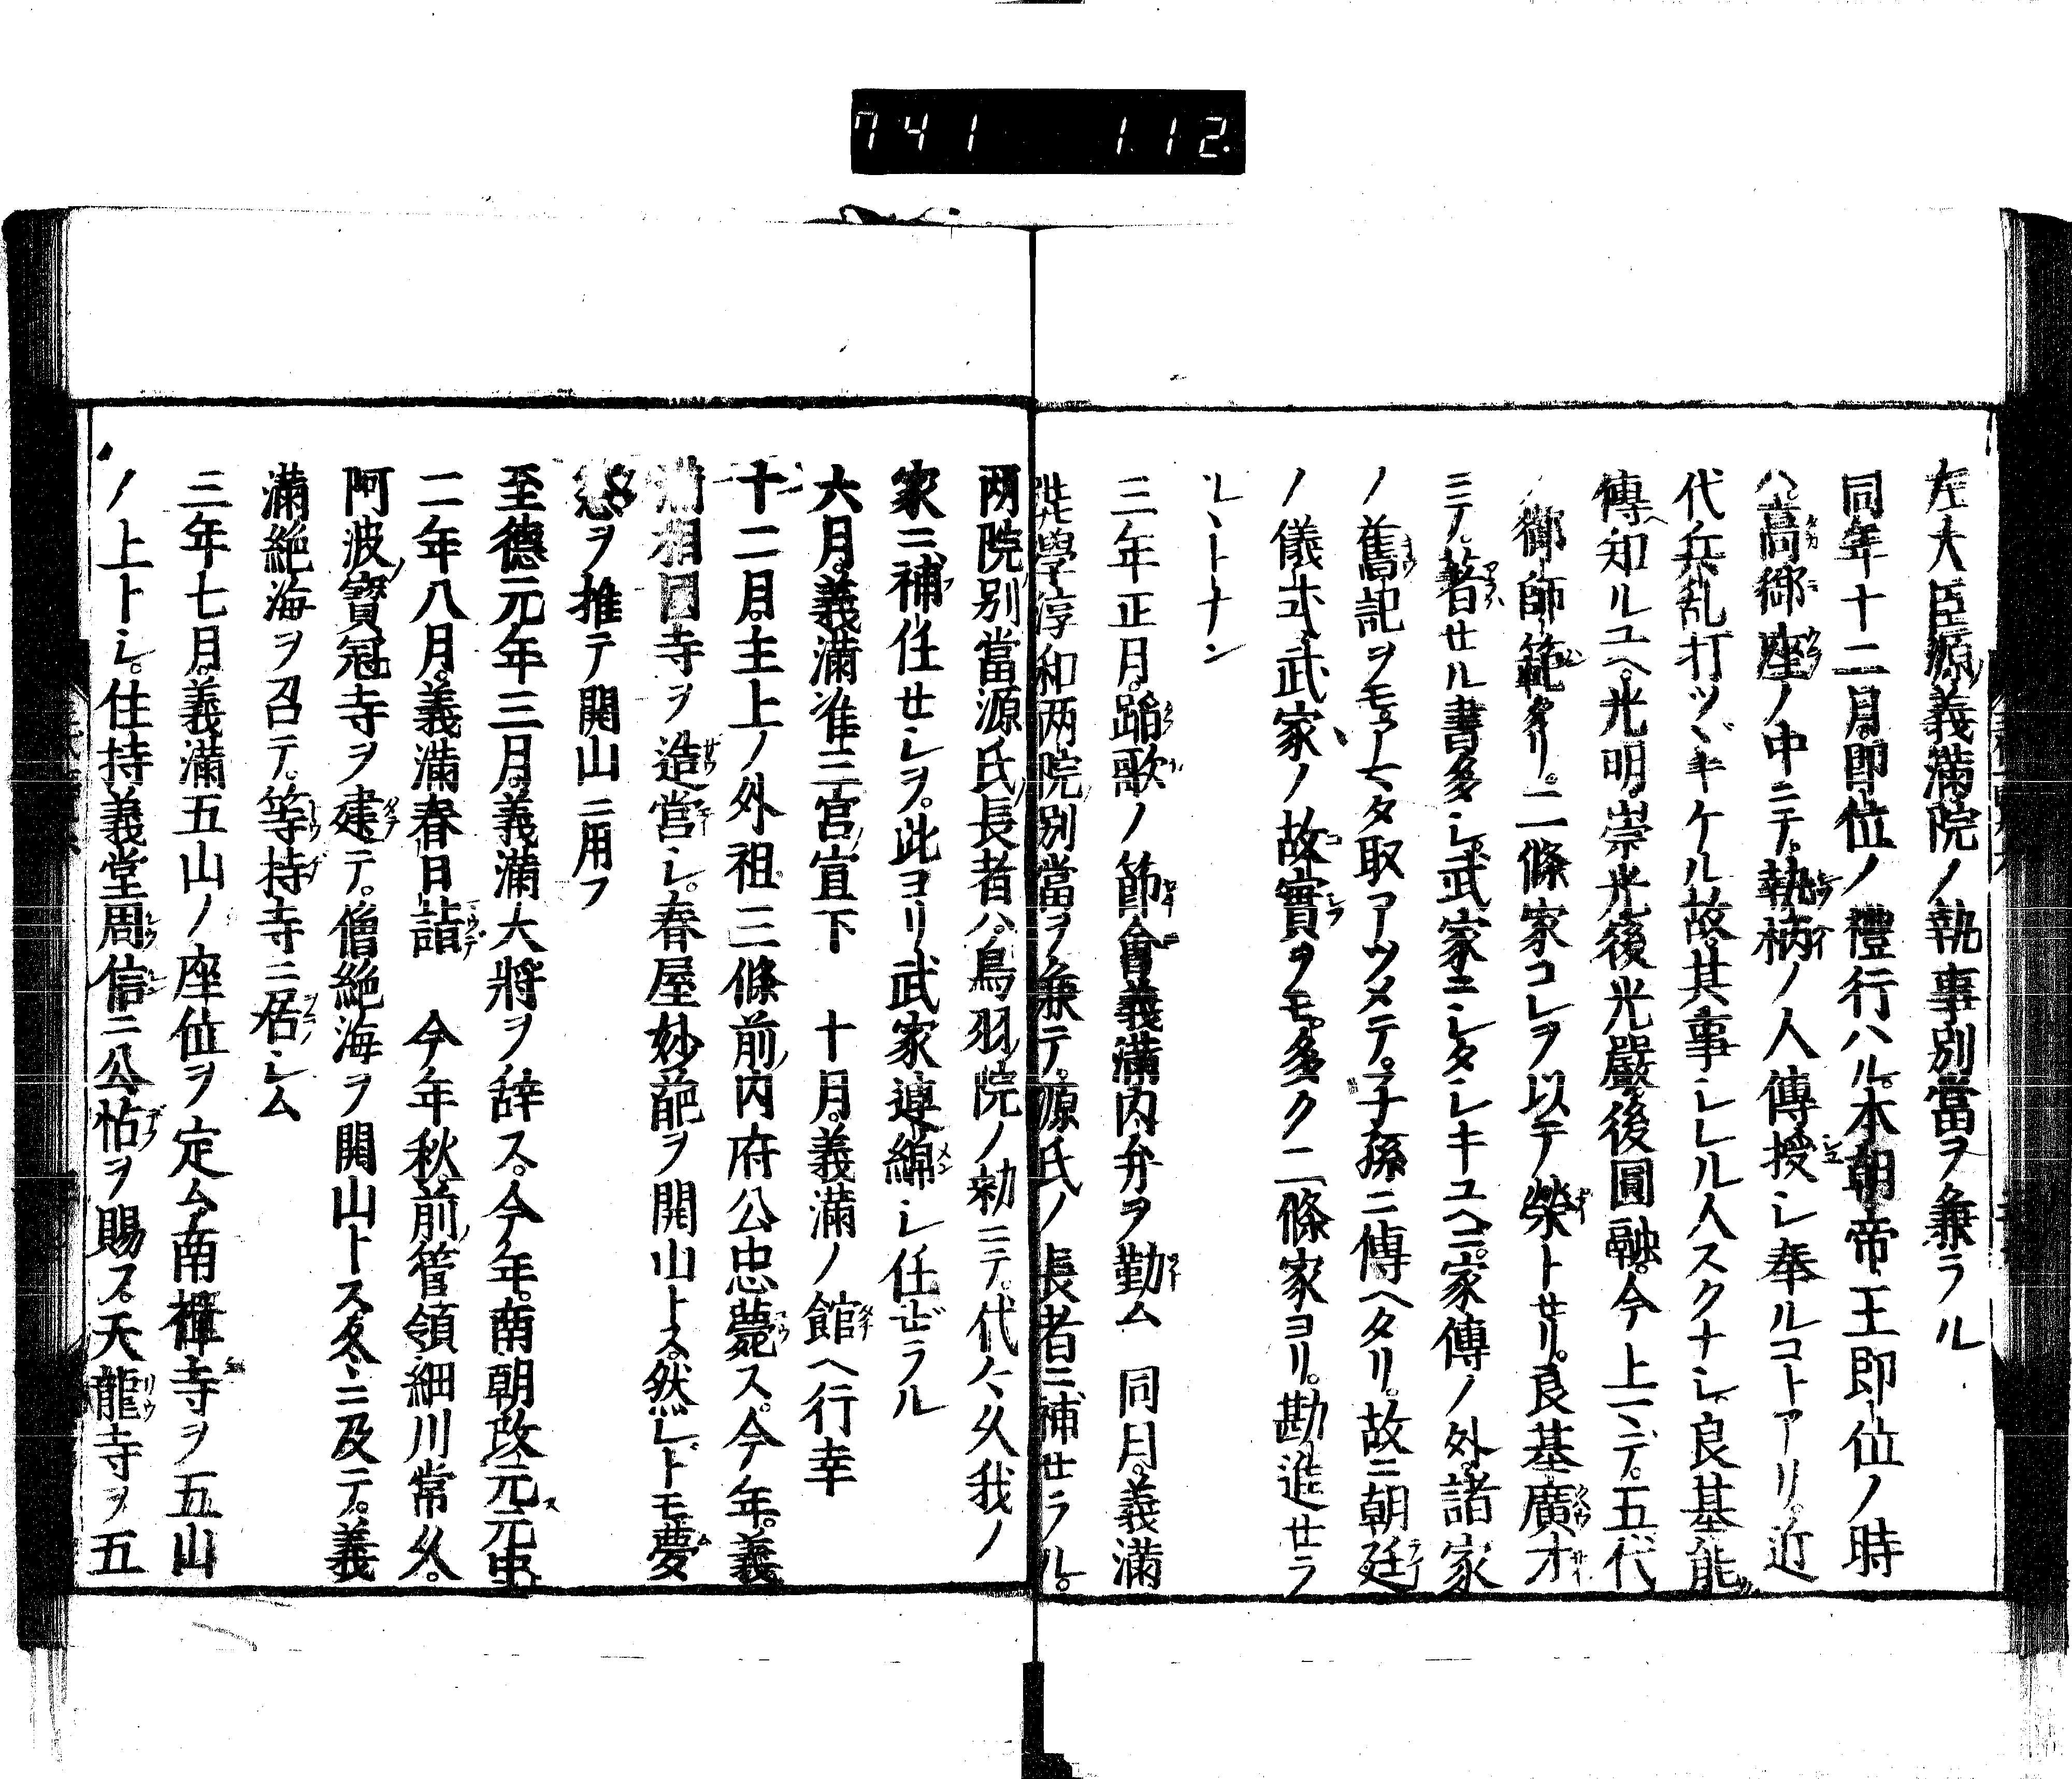 741 112
左大臣源義満院ノ執事別當ヲ兼ラル
同年十二月。即位ノ禮行ハル。本朝帝王即位ノ時
ハ。高御座ノ中ニテ。執柄ノ人傳授シ奉ルコトアリ。近
代兵乱打ツヾキケル故。其事シレル人スクナシ。良基能
傳知ルユヘ。光明崇光後光嚴後圓融。今上マデ。五代
ノ御師範タリ。二條家コレヲ以テ榮トセリ。良基廣才
ニテ。著セル書多シ。武家ニシタシキユヘニ。家傳ノ外。諸家
ノ舊記ヲモアマタ取アツメテ。子孫ニ傳ヘタリ。故ニ朝廷
ノ儀式武家ノ故實ヲモ。多ク二條家ヨリ。勘進セラ
ルヽトナン
三年正月。踏歌ノ節會義満内弁ヲ勤ム 同月。義満
奨學淳和两院別當ヲ兼テ。源氏ノ長者ニ補セラル。
两院別當源氏長者ハ。鳥羽院ノ勅ニテ。代々久我ノ
家ニ補任セシヲ。此ヨリ武家連綿シ任ゼラル
六月。義満准三宮宣下 十月。義満ノ館ヘ行幸
十二月。主上ノ外祖三條前内府公忠薨ス。今年。義
満相国寺ヲ造営シ。春屋妙葩ヲ開山トス。然レドモ夢
窓ヲ推テ開山ニ用フ
至德元年三月。義満大將ヲ辞ス。今年。南朝改元元中ス
二年八月。義満春日詣 今年秋。前管領細川常久。
阿波寳冠寺ヲ建テ。僧絶海ヲ開山トス。冬ニ及テ。義
満絶海ヲ召テ。等持寺ニ居シム
三年七月。義満五山ノ座位ヲ定ム。南禪寺ヲ五山
ノ上トシ。住持義堂周信ニ公帖ヲ賜ス。天龍寺ヲ五